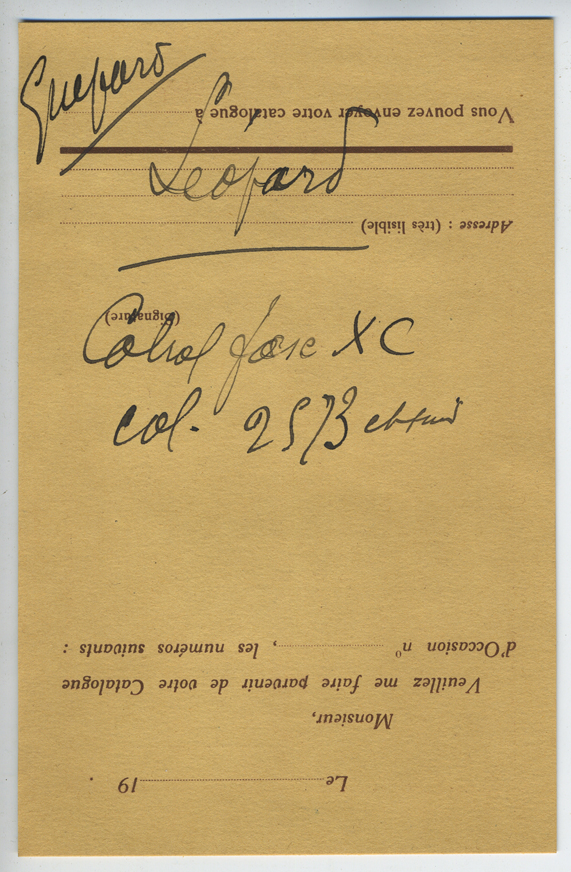 Guépard
Léopard
Cabral José XC
col. 2573
Le 19 .
Monsieur,
Veuillez me faire parvenir de votre Catalogue
d'Occasion n° , les numéros suivants :
(Signature)
Adresse : (très lisible)
Vous pouvez envoyer votre catalogue à